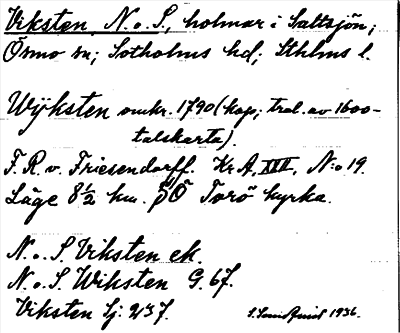 Viksten, N. o S., holmar i Saltsjön;
Ösmo sn; Sotholms hd; Sthlms l.
Wijksten omkr. 1790 (kop; trol. av 1600-
talskarta).
F. R. v. Friesendorff. Kr A, XIII, N:o 19.
Läge 8½ km. SÖ Torö kyrka.
N. o. S. Viksten ek.
N. o. S. Wiksten G. 67.
Viksten Sj. 237.
1936.